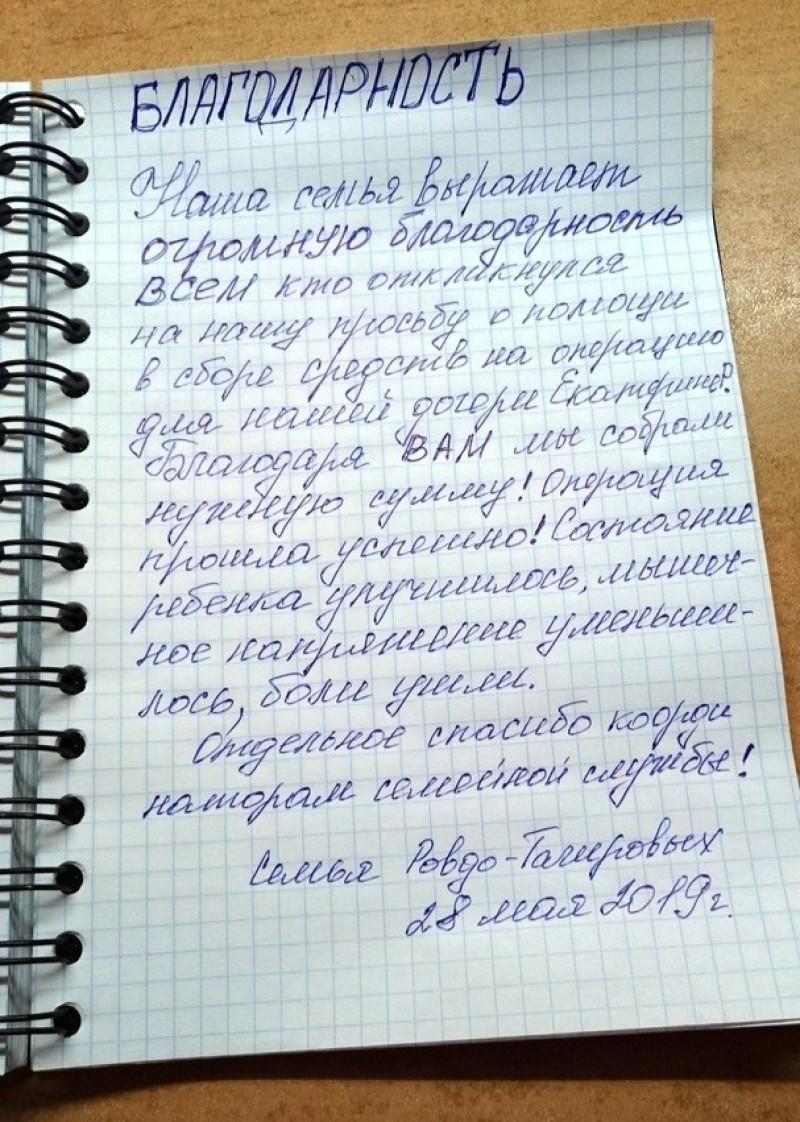 БЛАГОДАРНОСТЬ
Наша семья выражает
огромную благодарность
всем кто откликнулся
на нашу просьбу о помощи
в сборе средств на операцию
для нашей дочери Екатерины.
Благодаря ВАМ мы собрали
нужную сумму! Операция
прошла успешно! Состояние
ребенка улучшилось, мышеч-
ное напряжение уменьши-
лось, боли ушли.
Отдельное спасибо коорди
наторам семейной службы!
Семья
28 мая 2019г.